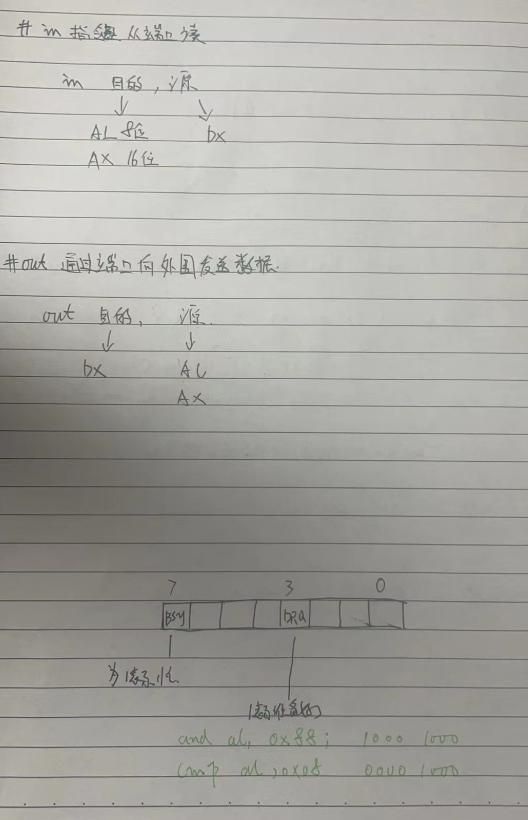 # in 指令 从端口读
in 目的, 源
AL 8位 DX
AX 16位
#out 通过端口向外围发送数据.
out 目的, 源.
DX AL
AX
7 3 0
BSY DRQ
为1表示忙
1表示准备好
and al, 0x88; 1000 1000
cmp al, 0x08 0000 1000